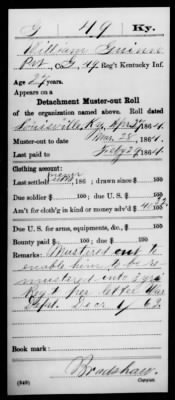 G | 49 | Ky.
William Guinn
Pvt, G, 49 Reg't Kentucky Inf.
Age 27 years.
Appears on a
Detachment Muster-out Roll
of the organization named above. Roll dated
Louisville, Ky, 186
Muster-out to date 186
Last paid to 186
Clothing account:
Last settled 186 ; drawn since $ 100
Due soldier $ 100 ; due U. S. $ 100
Am't for cloth'g in kind or money adv'd $
Due U. S. for arms, equipments, &c., $ 100
Bounty paid $ 100 ; due $ 100
Remarks: Mustered out to
enable him to be re-
mustered into
per letter War
Dept.
Book mark:
Bradshaw
(349) Copyist.